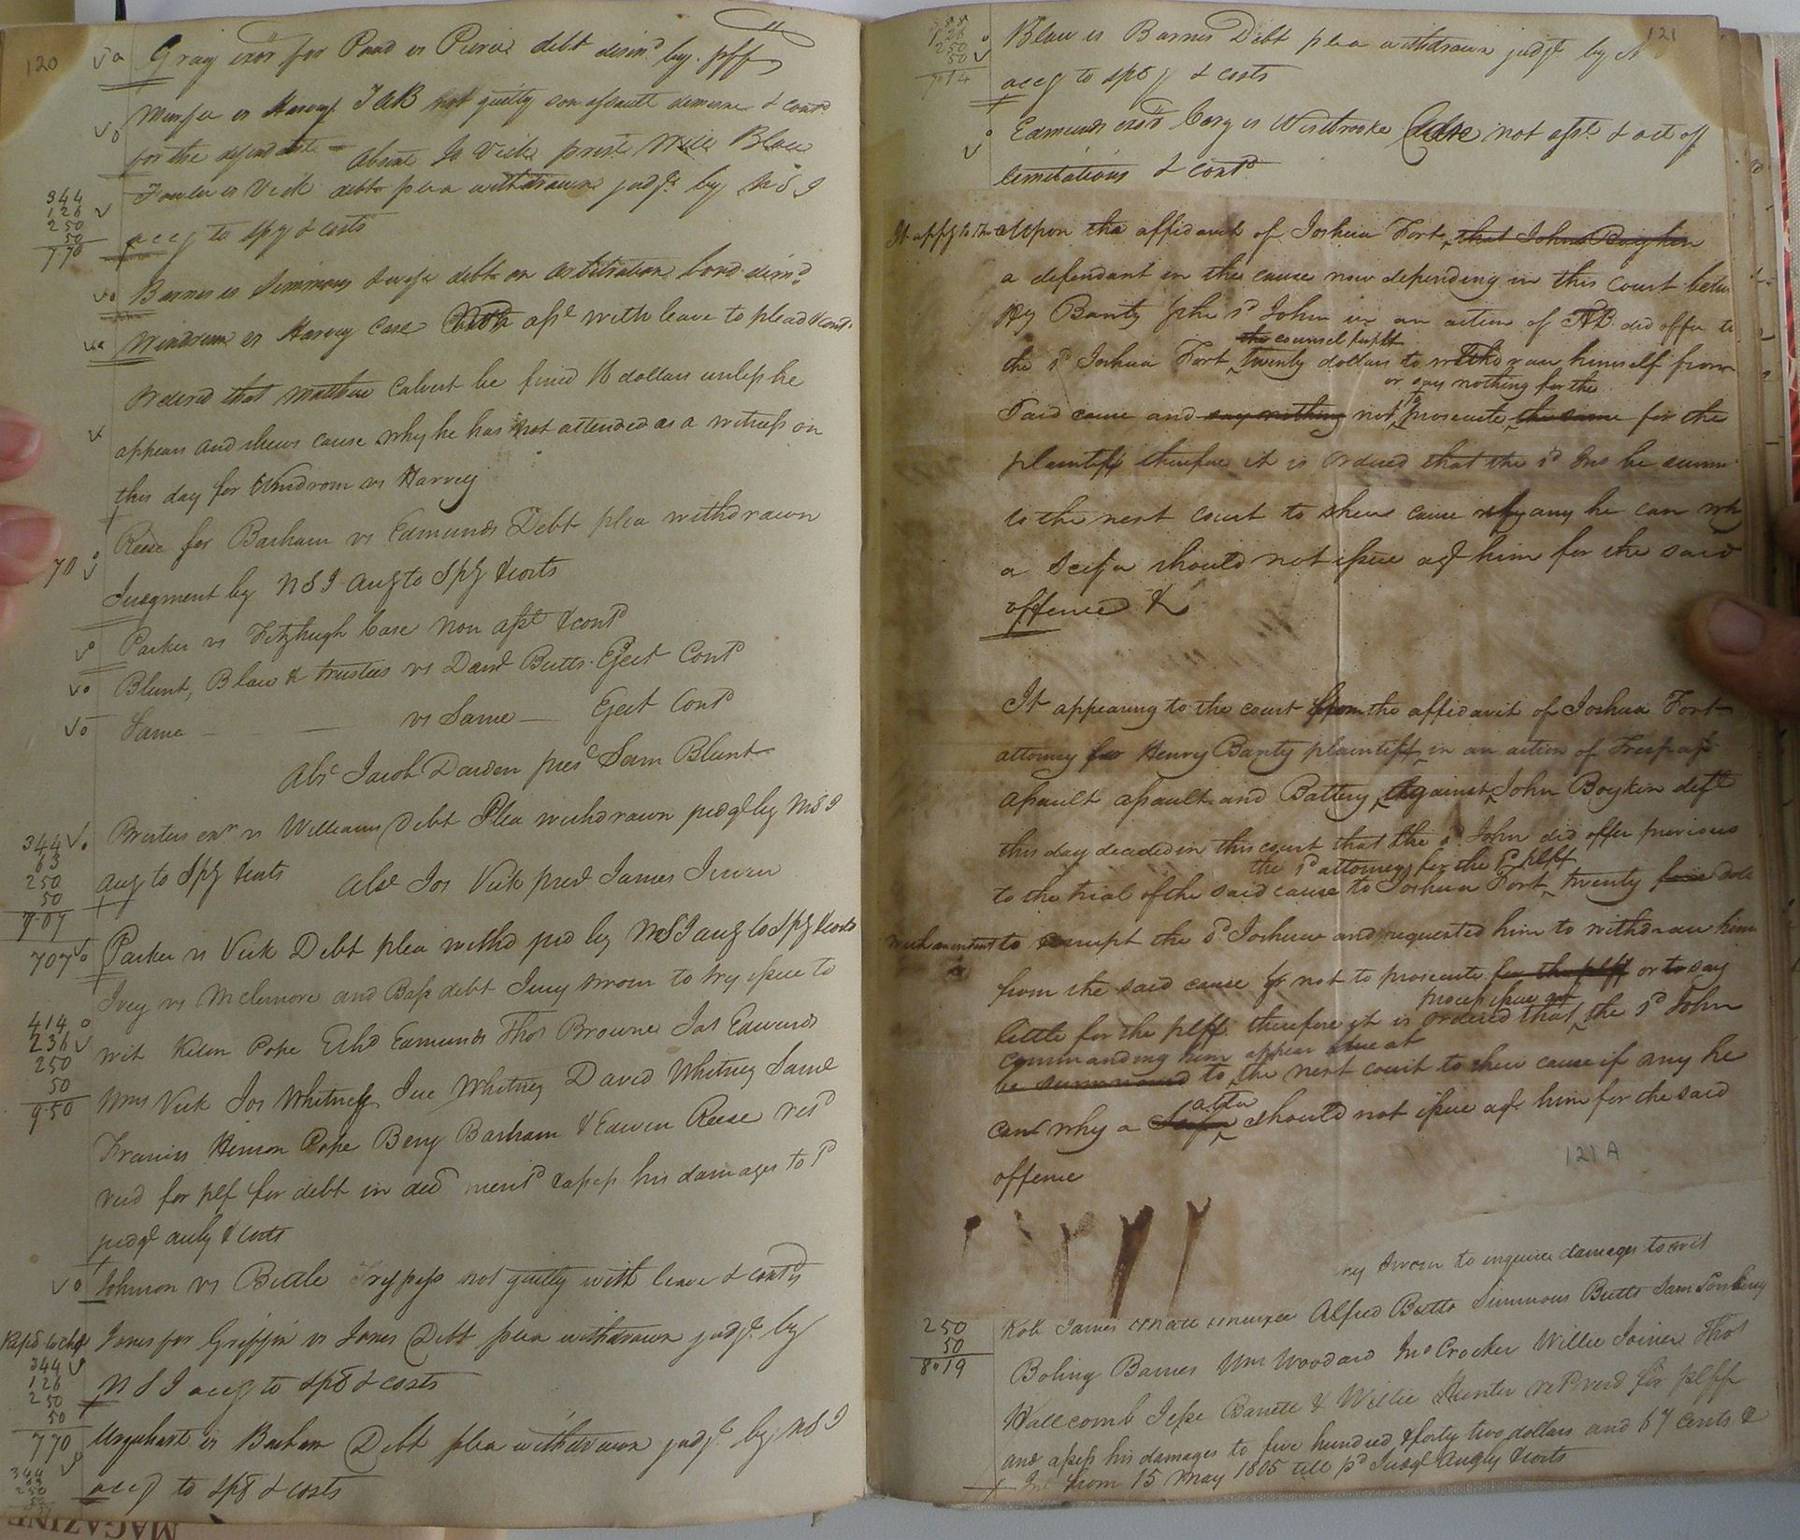 120
Gray exor for Pond vs Pierce debt dism.d by plff
Murfee vs Harvey TAB not guilty son assault demesne & cont.d
for the defendant — absent Jo Vick prest Blow
Fowler vs Vick debt plea withdrawn judgt by N S J
accg to spy & costs
344
126
250
50
770
Barnes vs Simmons & wife debt on arbitration bond dism.d
Windrom vs Harvey Case Non asst with leave to plead & cont.
Ordered that Matthew Calvert be fined 16 dollars unless he
appears and shews cause why he has not attended as a witness on
this day for Windrom vs Harvey
Reese for Barham vs Edmunds Debt plea withdrawn
Judgment by N S J aug to Spy & costs
Parker vs Fitzhugh Case non asst & cont.d
Blunt, Blow & trustees vs Danl Butts Eject Cont.d
Same — — vs Same — Eject Cont.d
Abs.t Jacob Darden pres.t Sam Blunt
Williams Debt Plea withdrawn judgt by N S J
aug to Spy & costs Abst Jos Vick prest James
344
63
250
50
707
Parker vs Vick Debt plea withd jud by N S J aug to Spy & costs
707
Ivey vs Mclemore and Bass debt Jury sworn to try issue to
414
236
250
50
950
wit Kilen Pope Edmunds Thos Browne Jas Edwards
Wm Vick Jos Whitney Whitney David Whitney Saml
Francis Hinson Pope Benj Barham & Edwin Reese ret.d
verd for plf for debt in & assess his damages to
judgt & costs
Johnson vs Bittle Tresspass not guilty with leave & cont.d
Jones for Griffin vs Jones Debt plea withdrawn judgt by
344
126
250
50
770
N S J accg to spy & costs
Urquhart vs Barham Debt plea withdrawn judgt by N S J
accg to spy & costs
121
Blow vs Barnes Debt plea withdrawn judgt by N
126
250
50
accg to spy & costs
Edmunds exor Cary vs Westbrooke Case not asst & act of
limitations & cont.d
Upon the affidavit of Joshua Fort, that John Boyken
a defendant in the cause now depending in this Court betw
Hy Banty & the sd John in an action of TAB did offer to
the counsel for plt
the sd Joshua Fort, twenty dollars to withdraw himself from
or say nothing for the
Said cause and say nothing not to prosecute the same for the
plaintiff therefore it is ordered that the sd Jno be summ
to the next court to shew cause if any he can why
a Scifa should not issue agt him for the said
offence &
It appearing to the court from the affidavit of Joshua Fort
attorney for Henry Banty plaintiff in an action of Trespass
assault assault and Battery, against John Boykin deft
this day decided in this court that the sd John did offer previous
the sd attorney for the sd plff
to the trial of the said cause to Joshua Fort, twenty dolls
with an intent to corrupt the sd Joshua and requested him to withdraw him
from the said cause or not to prosecute for the plff or to say
process issue agt
little for the plff therefore it is ordered that the sd John
commanding him appear at
be summoned to the next court to shew cause if any he
atta
can why a Scifa should not issue agt him for the said
offence
121 A
ry sworn to inquire damages to wit
250
50
8.19
Rob James Alfred Butts Simmons Butts Sam
Boling Barnes Wm Woodard Jno Crocker Willie Joiner Thos
Hallcomb Jesse Barrett & Willie Hunter ret verd for plff
and assess his damages to five hundred & forty two dollars and 67 Cents &
Int from 15 May 1805 till pd Judgt & costs
MAGAZINE